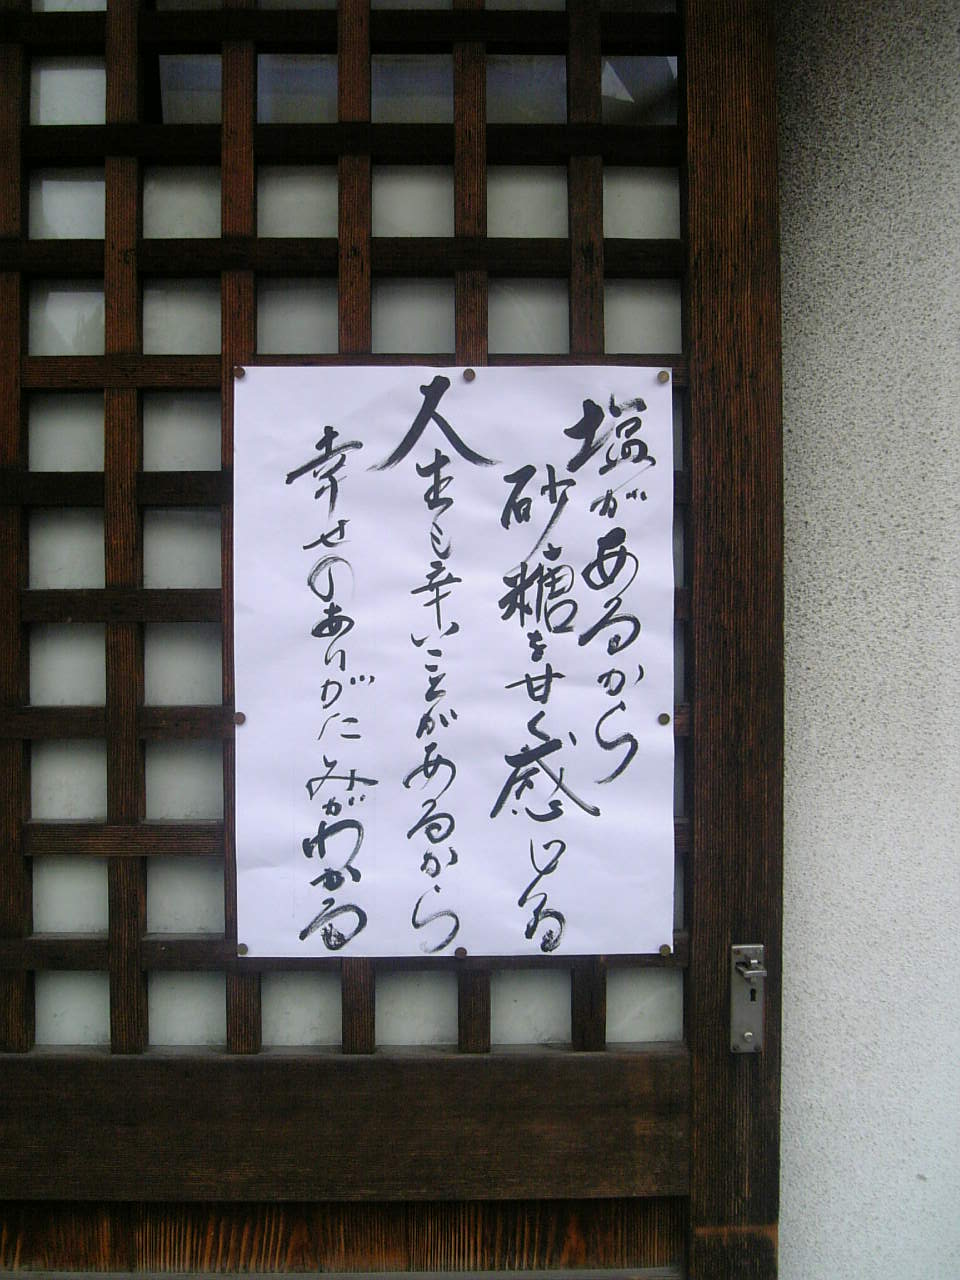 塩があるから
砂糖を甘く感じる
人生も辛いことがあるから
幸せのありがたみがわかる